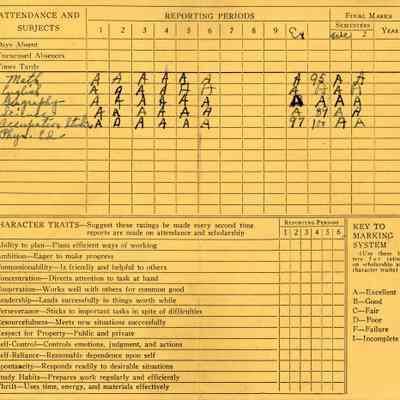 ATTENDANCE AND SUBJECTS REPORTING PERIODS FINAL MARKS
1 2 3 4 5 6 7 8 9 SEMESTERS YEAR
Days Absent
Unexcused Absences
Times Tardy
Math A A A A A A A 95 A A
English A A A A A A A A A A
Geography A A A A A A A A A
Science A A A A A A A 89 A A
Occupation A D A A A A 97 100 A A
Phys. Ed.
CHARACTER TRAITS—Suggest these ratings be made every second time reports are made on attendance and scholarship
REPORTING PERIODS
1 2 3 4 5 6
Ability to plan—Plans efficient ways of working
Ambition—Eager to make progress
Companionability—Is friendly and helpful to others
Concentration—Directs attention to task at hand
Cooperation—Works well with others for common good
Leadership—Leads successfully in things worth while
Perseverance—Sticks to important tasks in spite of difficulties
Resourcefulness—Meets new situations successfully
Respect for Property—Public and private
Self-Control—Controls emotions, judgment, and actions
Self-Reliance—Reasonable dependence upon self
Spontaneity—Responds readily to desirable situations
Study Habits—Prepares work regularly and efficiently
Thrift—Uses time, energy, and materials effectively
KEY TO
MARKING
SYSTEM
(Use these
ters for rating
on scholarship a
character traits)
A—Excellent
B—Good
C—Fair
D—Poor
F—Failure
I—Incomplete